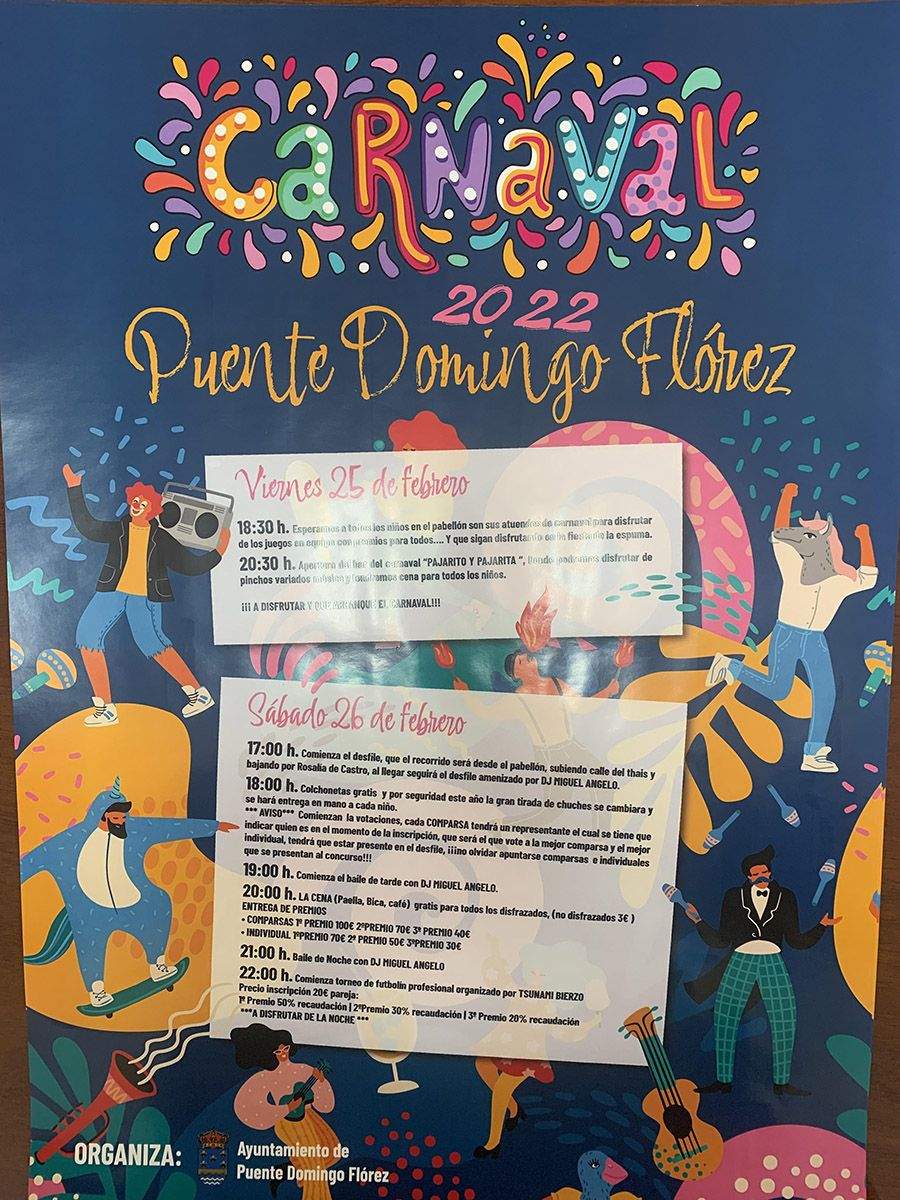 CARNAVAL
2022
Puente Domingo Flórez
Viernes 25 de febrero
18:30 h. Esperamos a todos los niños en el pabellón son sus atuendos de carnaval para disfrutar
de los juegos en equipo con premios para todos.... Y que sigan disfrutando en la fiesta de la espuma.
20:30 h. Apertura del bar del carnaval "PAJARITO Y PAJARITA ", Donde podremos disfrutar de
pinchos variados cena para todos los niños.
¡¡¡ A DISFRUTAR Y QUE ARRANQUE EL CARNAVAL!!!
Sábado 26 de febrero
17:00 h. Comienza el desfile, que el recorrido será desde el pabellón, subiendo calle del thais y
bajando por Rosalía de Castro, al llegar seguirá el desfile amenizado por DJ MIGUEL ANGELO.
18:00 h. Colchonetas gratis y por seguridad este año la gran tirada de chuches se cambiara y
se hará entrega en mano a cada niño.
*** AVISO*** Comienzan la votaciones, cada COMPARSA tendrá un representante el cual se tiene que
indicar quien es en el momento de la inscripción, que será el que vote a la mejor comparsa y el mejor
individual, tendrá que estar presente en el desfile, ¡¡¡no olvidar apuntarse comparsas e individuales
que se presentan al concurso!!!
19:00 h. Comienza el baile de tarde con DJ MIGUEL ANGELO.
20:00 h. LA CENA (Paella, Bica, café) gratis para todos los disfrazados, (no disfrazados 3€ )
ENTREGA DE PREMIOS
• COMPARSAS 1º PREMIO 100€ 2ºPREMIO 70€ 3º PREMIO 40€
• INDIVIDUAL 1ºPREMIO 70€ 2º PREMIO 50€ 3ºPREMIO 30€
21:00 h. Baile de Noche con DJ MIGUEL ANGELO
22:00 h. Comienza torneo de futbolín profesional organizado por TSUNAMI BIERZO
Precio inscripción 20€ pareja:
1º Premio 50% recaudación | 2ºPremio 30% recaudación | 3º Premio 20% recaudación
***A DISFRUTAR DE LA NOCHE ***
ORGANIZA:
Ayuntamiento de
Puente Domingo Flórez